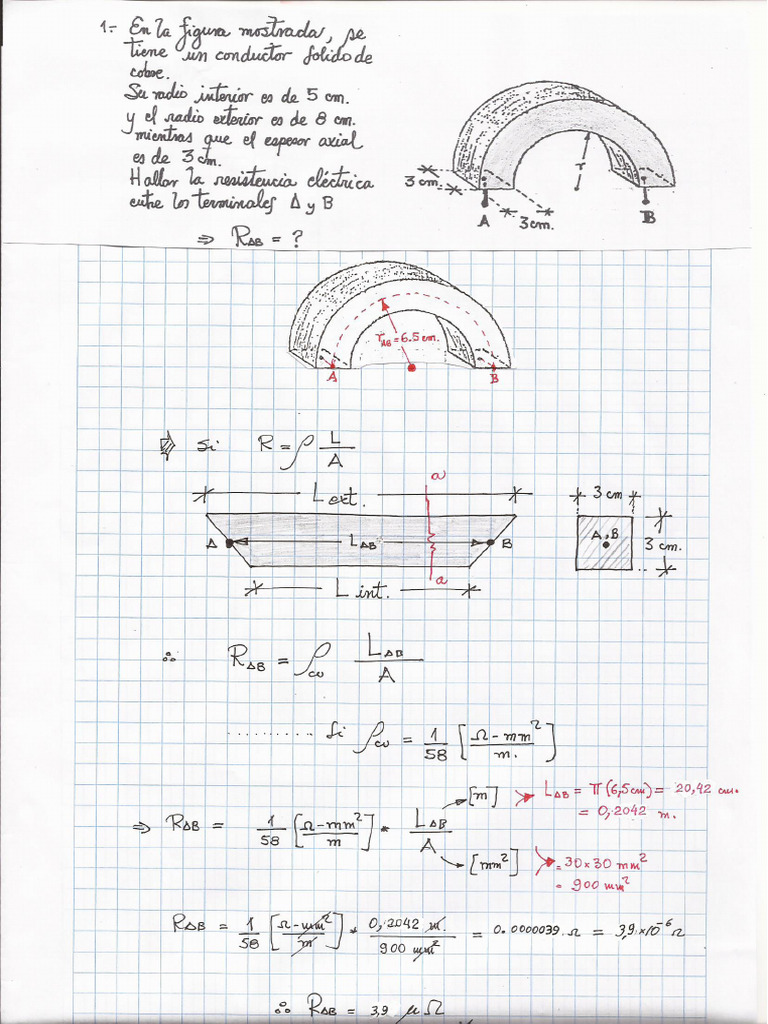 1.- En la figura mostrada, se
tiene un conductor solido de
cobre.
Su radio interior es de 5 cm.
y el radio exterior es de 8 cm.
mientras que el espesor axial
es de 3 cm.
Hallar la resistencia eléctrica
entre los terminales A y B
⇒ R_AB = ?
3 cm.
r
A
3cm.
B
r_AB = 6.5 cm.
A
B
⇒ Si R = ρ L/A
a
L ext.
A
L_AB
B
a
L int.
3 cm
A,B
3 cm.
∴ R_AB = ρ_cu L_AB/A
.......... Si ρ_cu = 1/58 [Ω-mm²/m.]
⇒ R_AB = 1/58 [Ω-mm²/m] * L_AB/A
[m]
L_AB = π(6,5cm) = 20,42 cm.
= 0,2042 m.
[mm²]
= 30×30 mm²
= 900 mm²
R_AB = 1/58 [Ω-mm²/m] * 0,2042 m./900 mm² = 0.0000039.Ω = 3,9×10⁻⁶ Ω
∴ R_AB = 3,9 μΩ